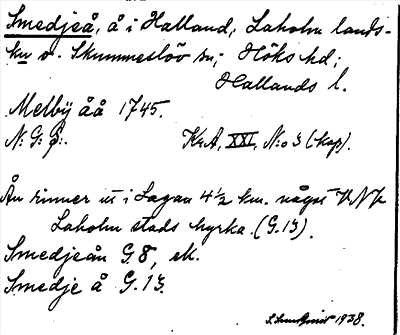 Smedjeå, å i Halland, Laholm lands-
ku o. Skummeslöv sn; Höks hd;
Hallands l.
Melby åå 1745.
N: G: g:. KrA, XXI, N:o 3 (kop).
Ån rinner ut i Lagan 4½ km. någst VNV
Laholm stads kyrka. (G.13).
Smedjeån G 8, ek.
Smedje å G.13.
1938.